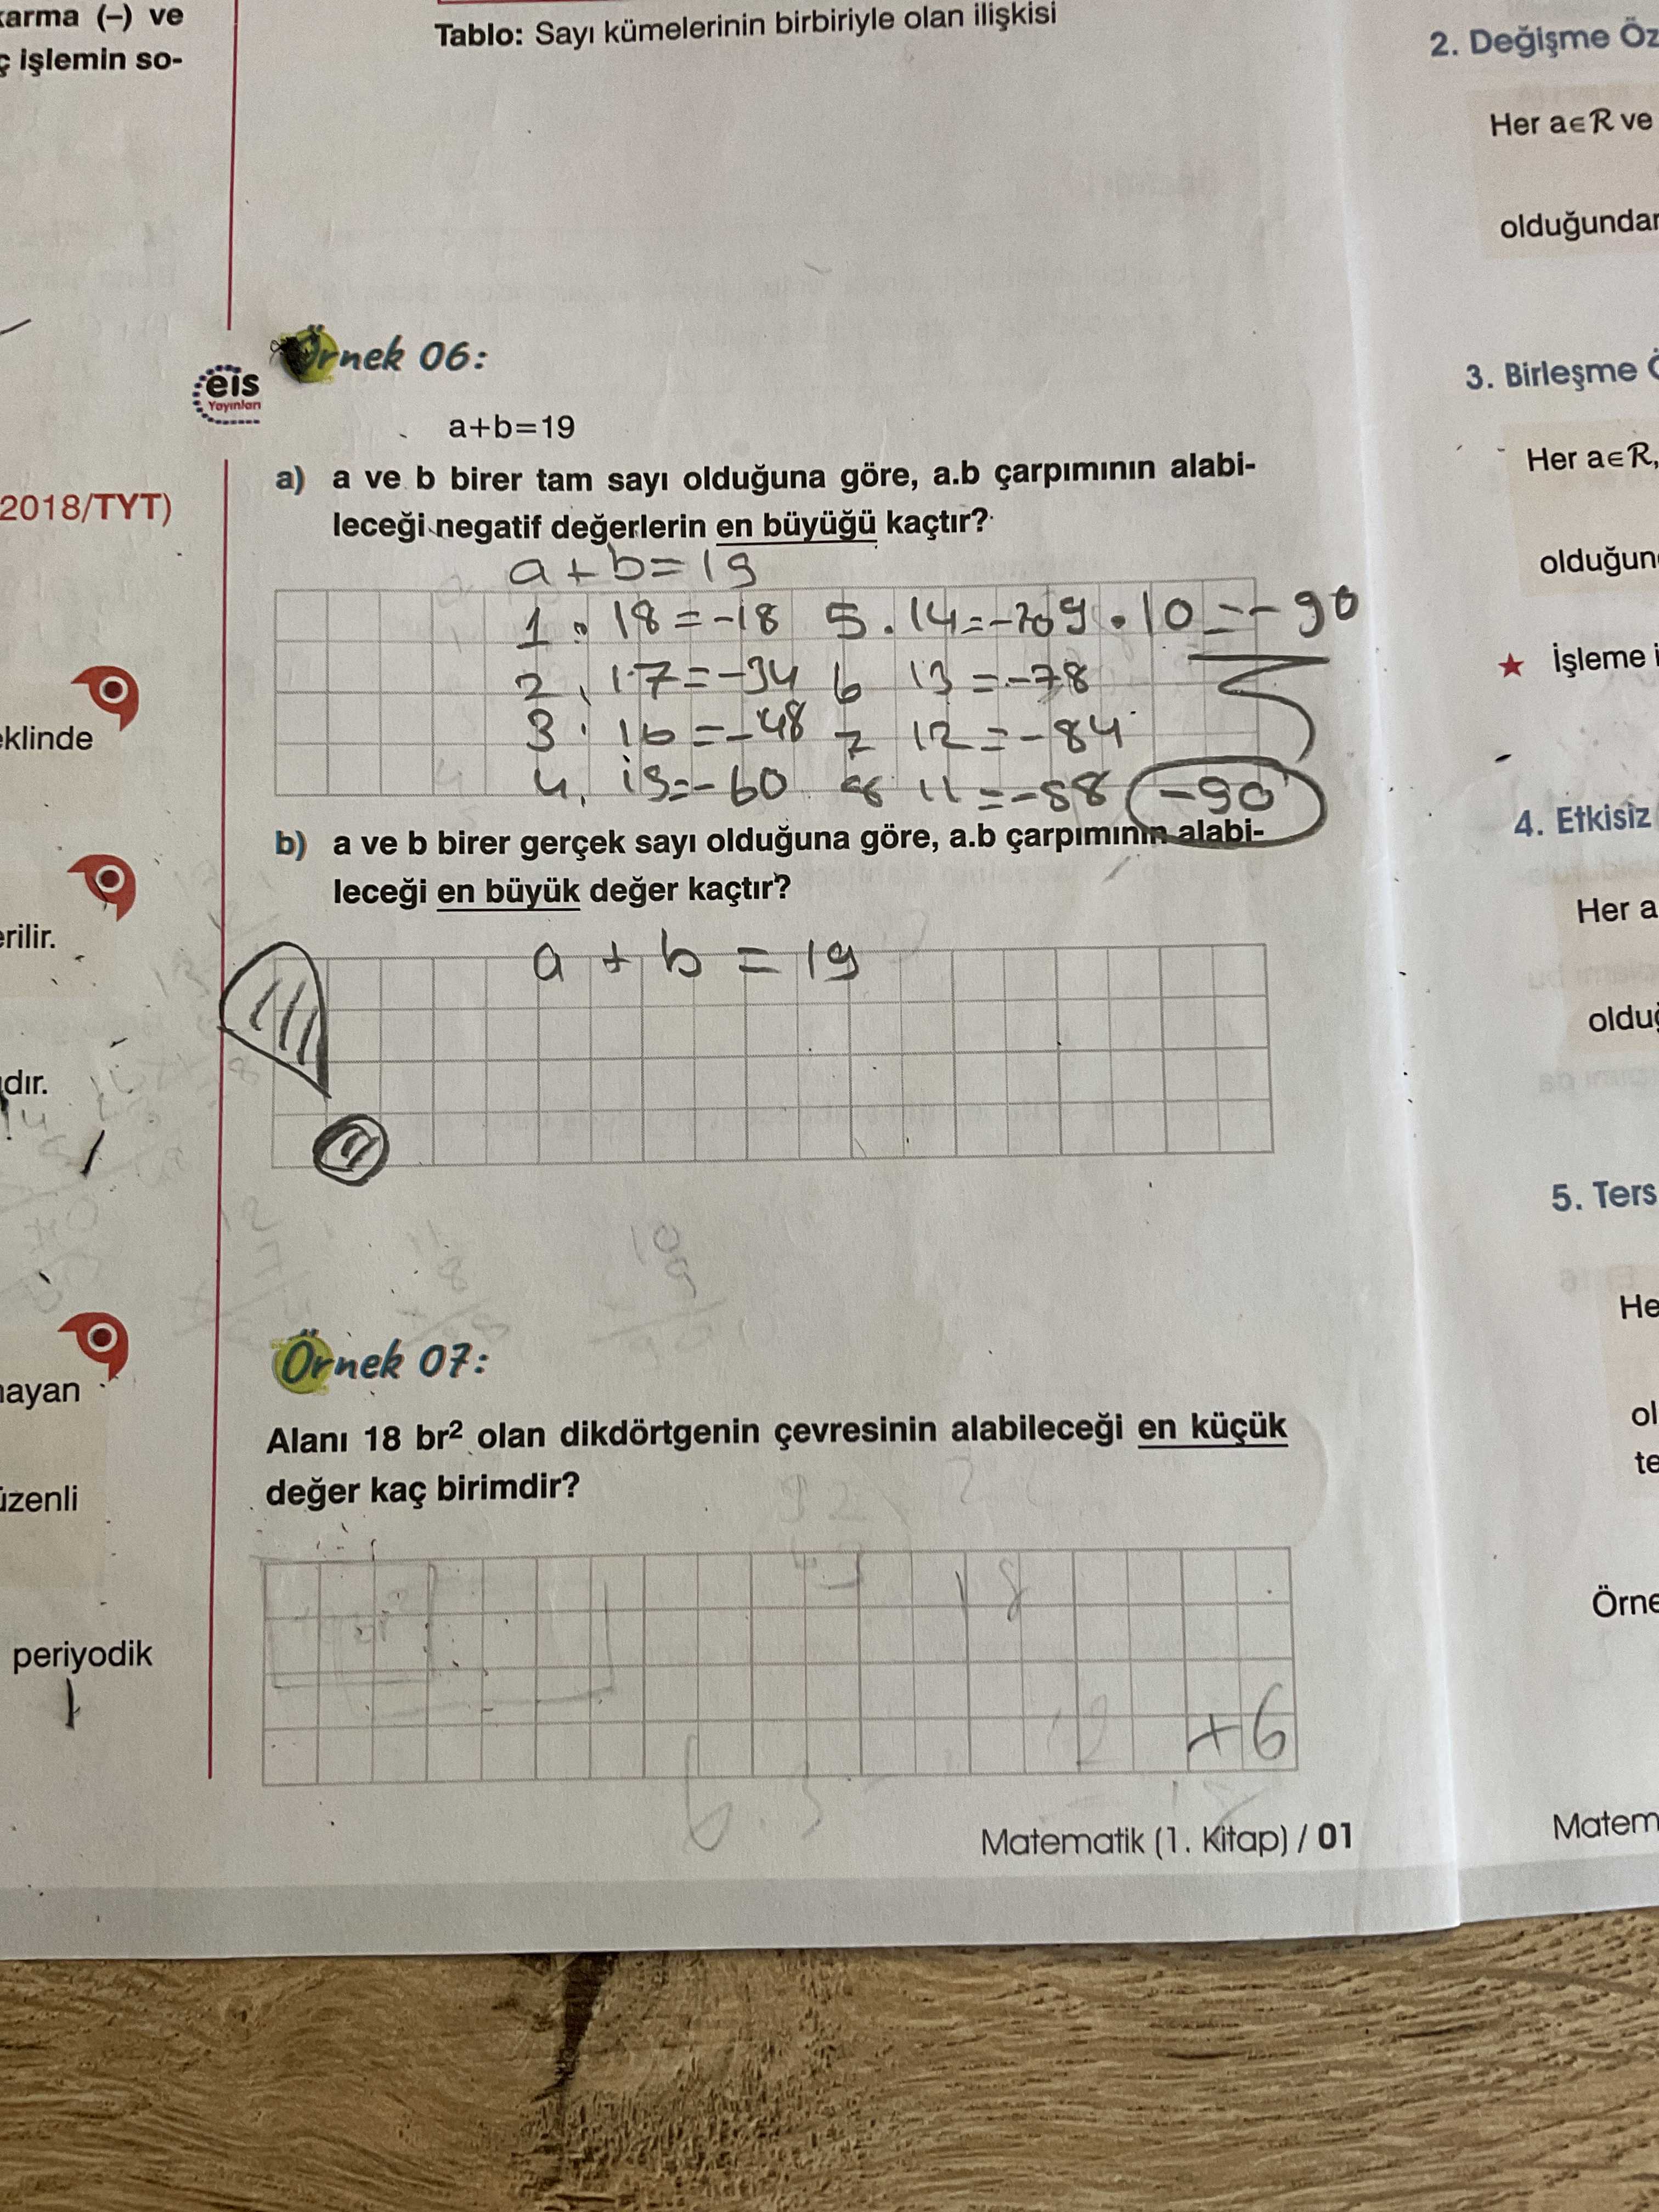 karma (–) ve
ç işlemin so-
2018/TYT)
eklinde
erilir.
dır.
mayan
üzenli
periyodik
Tablo: Sayı kümelerinin birbiriyle olan ilişkisi
eis
Yayınları
Örnek 06:
a+b=19
a) a ve b birer tam sayı olduğuna göre, a.b çarpımının alabi-
leceği negatif değerlerin en büyüğü kaçtır?
a+b=19
1 . 18=-18 5. 14=-70 9.10=-90
2. 17=-34 6 13=-78
3. 16=-48 7 12=-84
4. 15=-60 8 11=-88 -90
b) a ve b birer gerçek sayı olduğuna göre, a.b çarpımının alabi-
leceği en büyük değer kaçtır?
a + b = 19
Örnek 07:
Alanı 18 br² olan dikdörtgenin çevresinin alabileceği en küçük
değer kaç birimdir?
18
+6
6.3
Matematik (1. Kitap) / 01
2. Değişme Öz
Her a∈R ve
olduğundan
3. Birleşme Ö
Her a∈R,
olduğun
★ İşleme i
4. Etkisiz
Her a
olduğ
5. Ters
He
ol
te
Örne
Matem